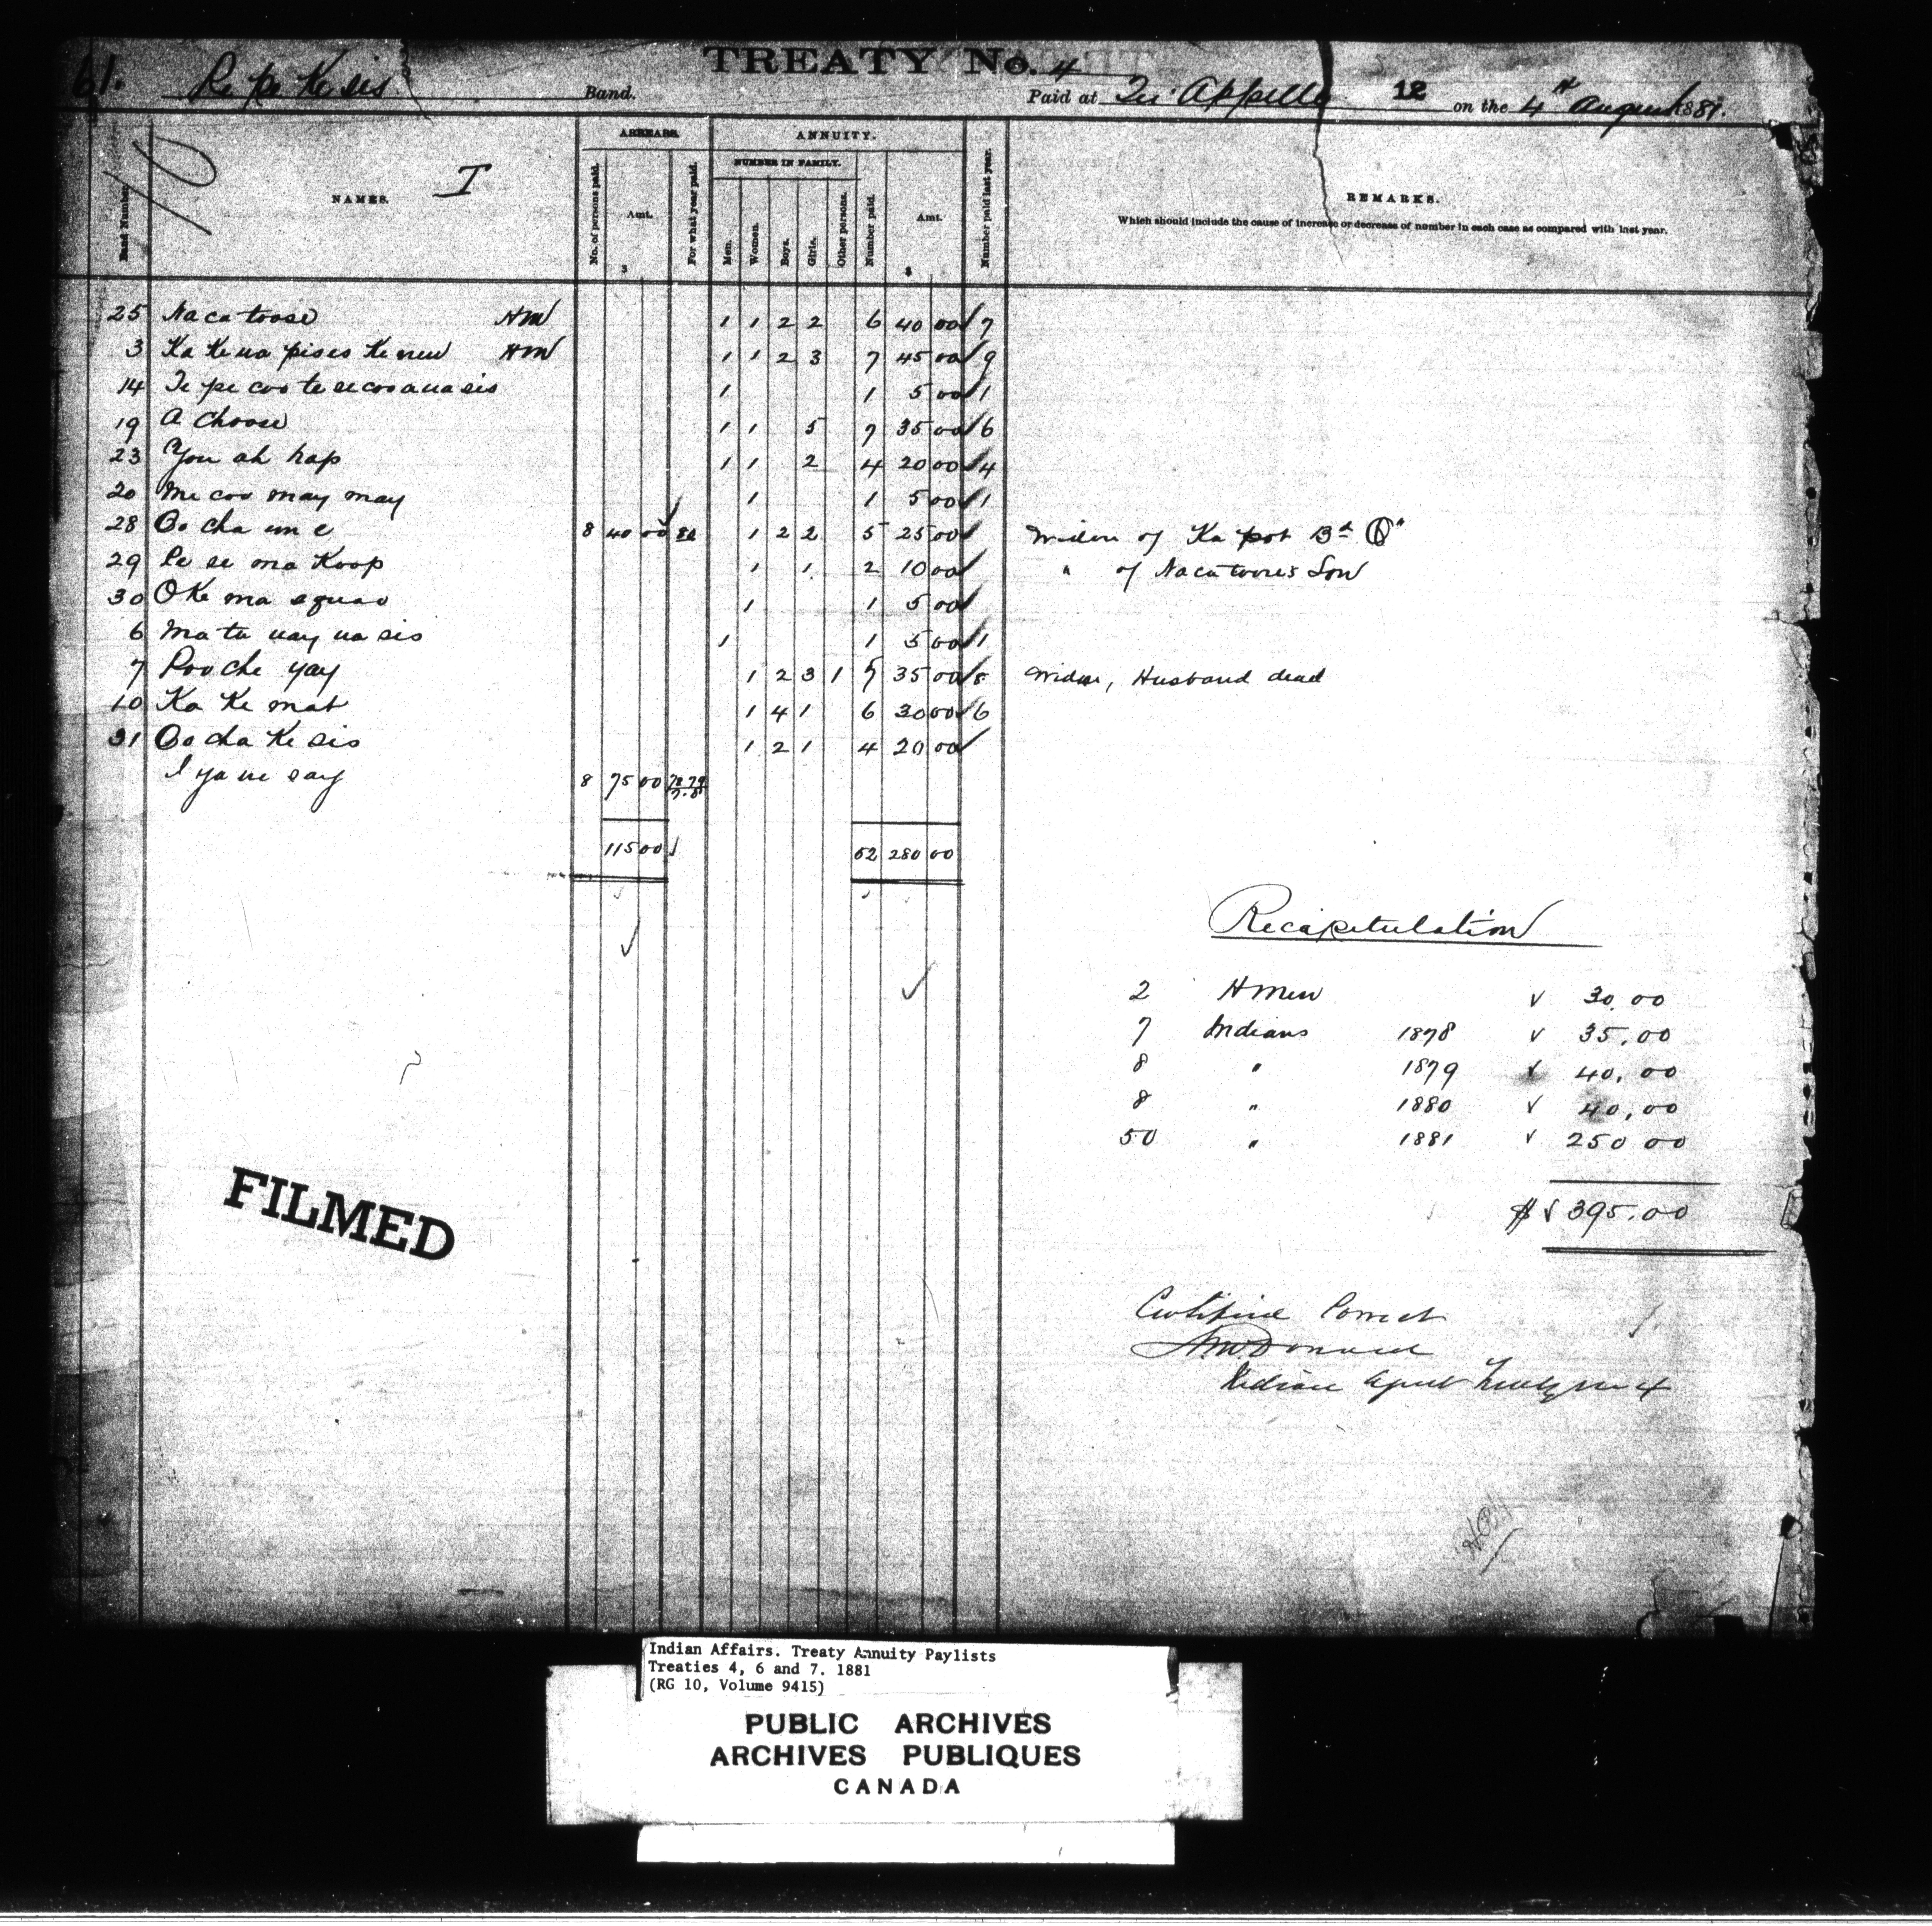 TREATY No. 4
61. Pe pe Ke sis Band. Paid at Qu'Appelle 12 on the 4th August 1881.
ARREARS. ANNUITY.
NUMBER IN FAMILY.
Band Number. NAMES. I No. of persons paid. Amt. For what year paid. Men. Women. Boys. Girls. Other persons. Number paid. Amt. Number paid last year. REMARKS.
Which should include the cause of increase or decrease of number in each case as compared with last year.
$ $
10
25 Nacatoose HM 1 1 2 2 6 40 00 7
3 Ka Ke na pises Ke new HM 1 1 2 3 7 45 00 9
14 1 1 5 00 1
19 A Choose 1 1 5 7 35 00 6
23 You ah hap 1 1 2 4 20 00 4
20 Me coo may may 1 1 5 00 1
28 Oo cha um e 8 40 00 80 1 2 2 5 25 00 Widow of Ka pot
29 Pe se ma Koop 1 1 2 10 00 " of Nacatoose's Son
30 O Ke ma squao 1 1 5 00
6 Ma tu uay ua sis 1 1 5 00 1
7 Poo che yay 1 2 3 1 7 35 00 8 Widow, Husband dead
10 Ka Ke mat 1 4 1 6 30 00 6
31 Oo cha Ke sis 1 2 1 4 20 00
I ya ue say 8 75 00 78 79
115 00 52 280 00
Recapitulation
2 HMen 30.00
7 Indians 1878 35.00
8 " 1879 40.00
8 " 1880 40.00
50 " 1881 250 00
$ 395.00
Certified Correct
A McDonald
Indian Agent Treaty No 4
FILMED
Indian Affairs. Treaty Annuity Paylists
Treaties 4, 6 and 7. 1881
(RG 10, Volume 9415)
PUBLIC ARCHIVES
ARCHIVES PUBLIQUES
CANADA